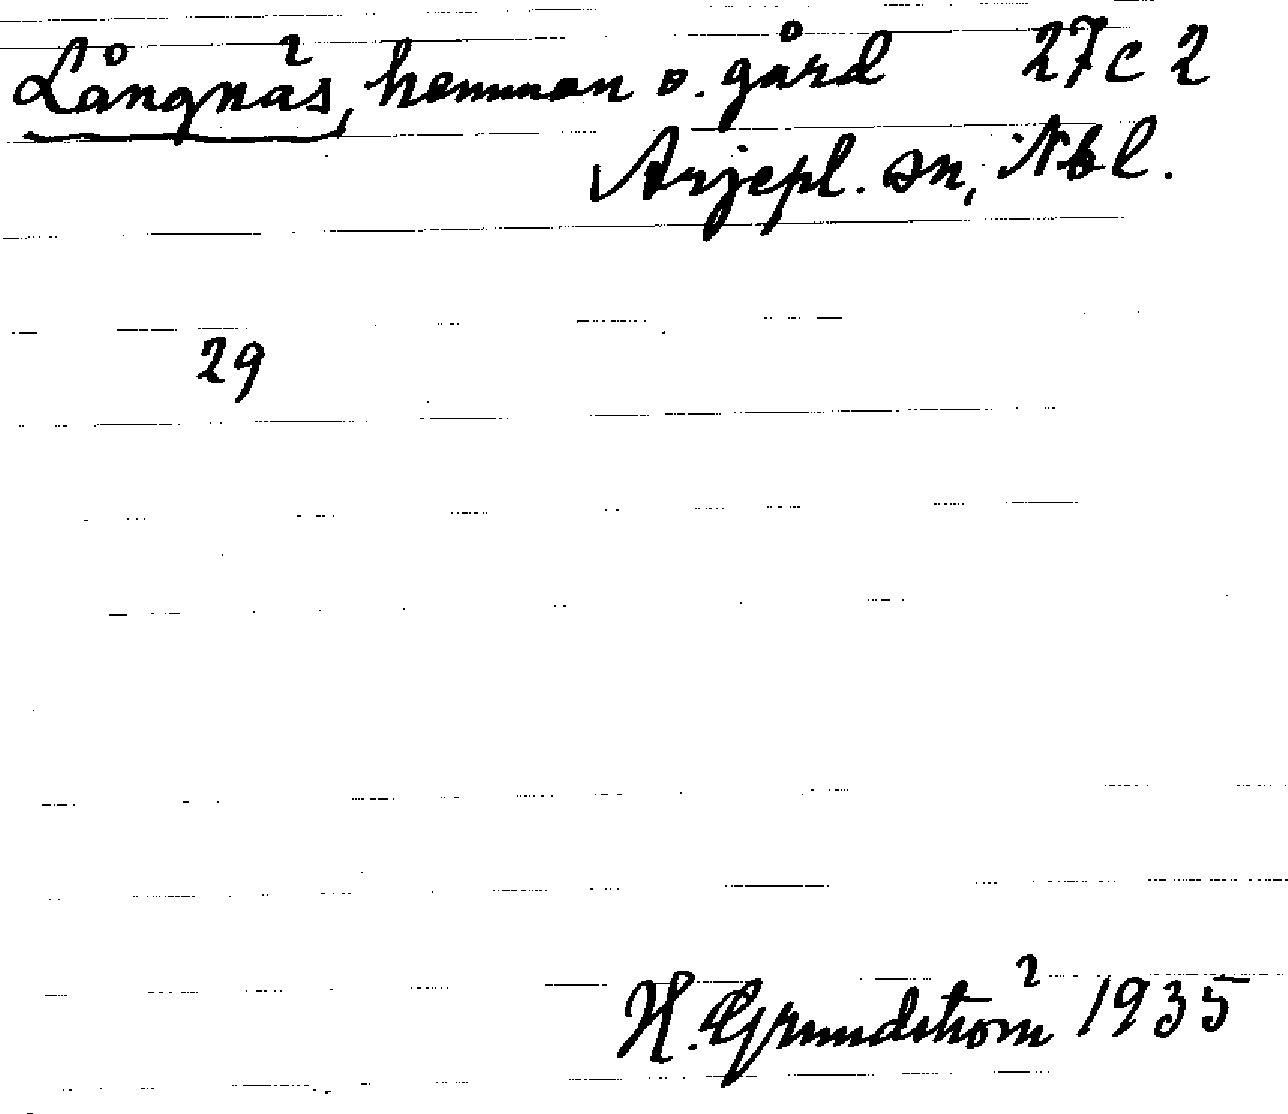 Långnäs, hemman o. gård 27c 2
Arjepl. sn, Nbl.
29
H. Grundström 1935